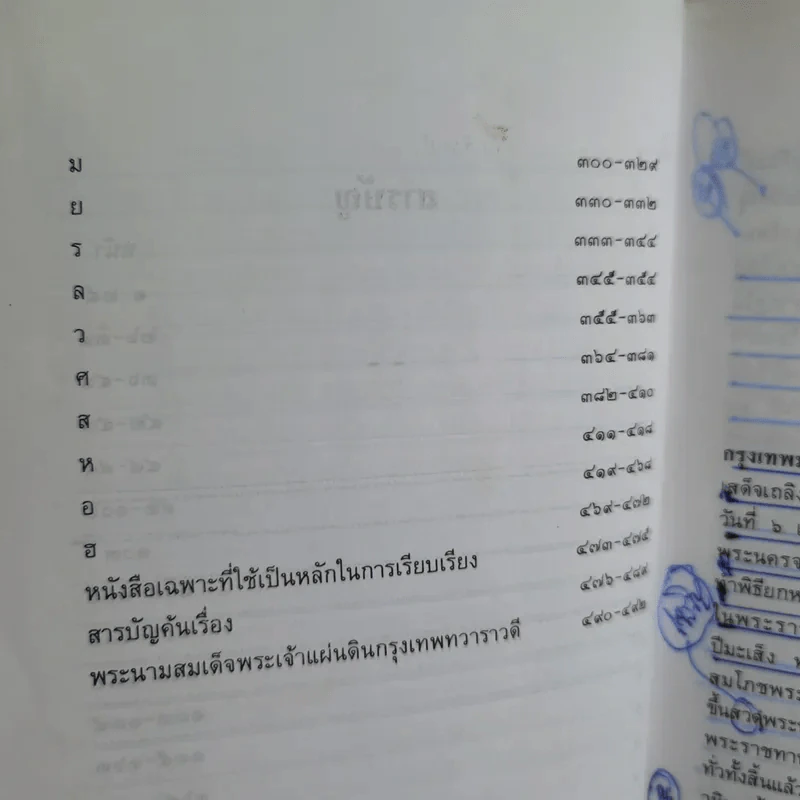 ม ๓๐๐-๓๒๙
ย ๓๓๐-๓๓๒
ร ๓๓๓-๓๔๔
ล ๓๔๕-๓๕๔
ว ๓๕๕-๓๖๓
ศ ๓๖๔-๓๘๑
ส ๓๘๒-๔๑๐
ห ๔๑๑-๔๑๘
อ ๔๑๙-๔๖๘
ฮ ๔๖๙-๔๗๒
หนังสือเฉพาะที่ใช้เป็นหลักในการเรียบเรียง ๔๗๓-๔๗๕
สารบัญค้นเรื่อง ๔๗๖-๔๘๙
พระนามสมเด็จพระเจ้าแผ่นดินกรุงเทพทวาราวดี ๔๙๐-๔๙๒
กรุงเทพม
เสด็จเถลิง
วันที่ ๖
พระนครจ
ทำพิธียกห
ในพระรา
ปีมะเส็ง
สมโภชพระ
ขึ้นสวดพระ
พระราชทา
ทั่วทั้งสิ้นแล้ว